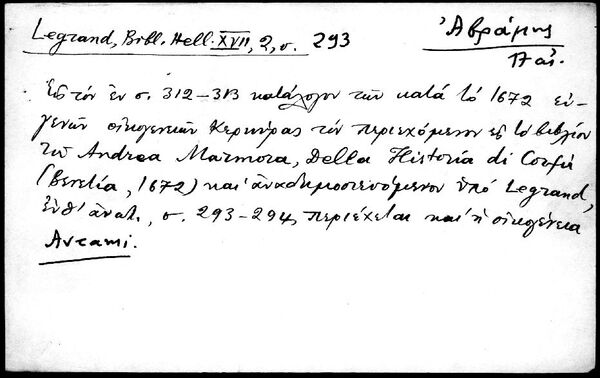 Legrand, Bibl. Hell. XVII, 2, σ. 293
Ἀβράμης
Παι.
Εἰς τόν ἐν σ. 312-313 κατάλογον τῶν κατά τό 1672 εὐ-
γενῶν οἰκογενειῶν Κερκύρας τόν περιεχόμενον εἰς τό βιβλίον
τοῦ Andrea Marmora, Della Historia di Corfù
(Βενετία, 1672) καί ἀναδημοσιευόμενον ὑπό Legrand,
ἔνθ' ἀνωτ., σ. 293-294, περιέχεται καί ἡ οἰκογένεια
Avrami.